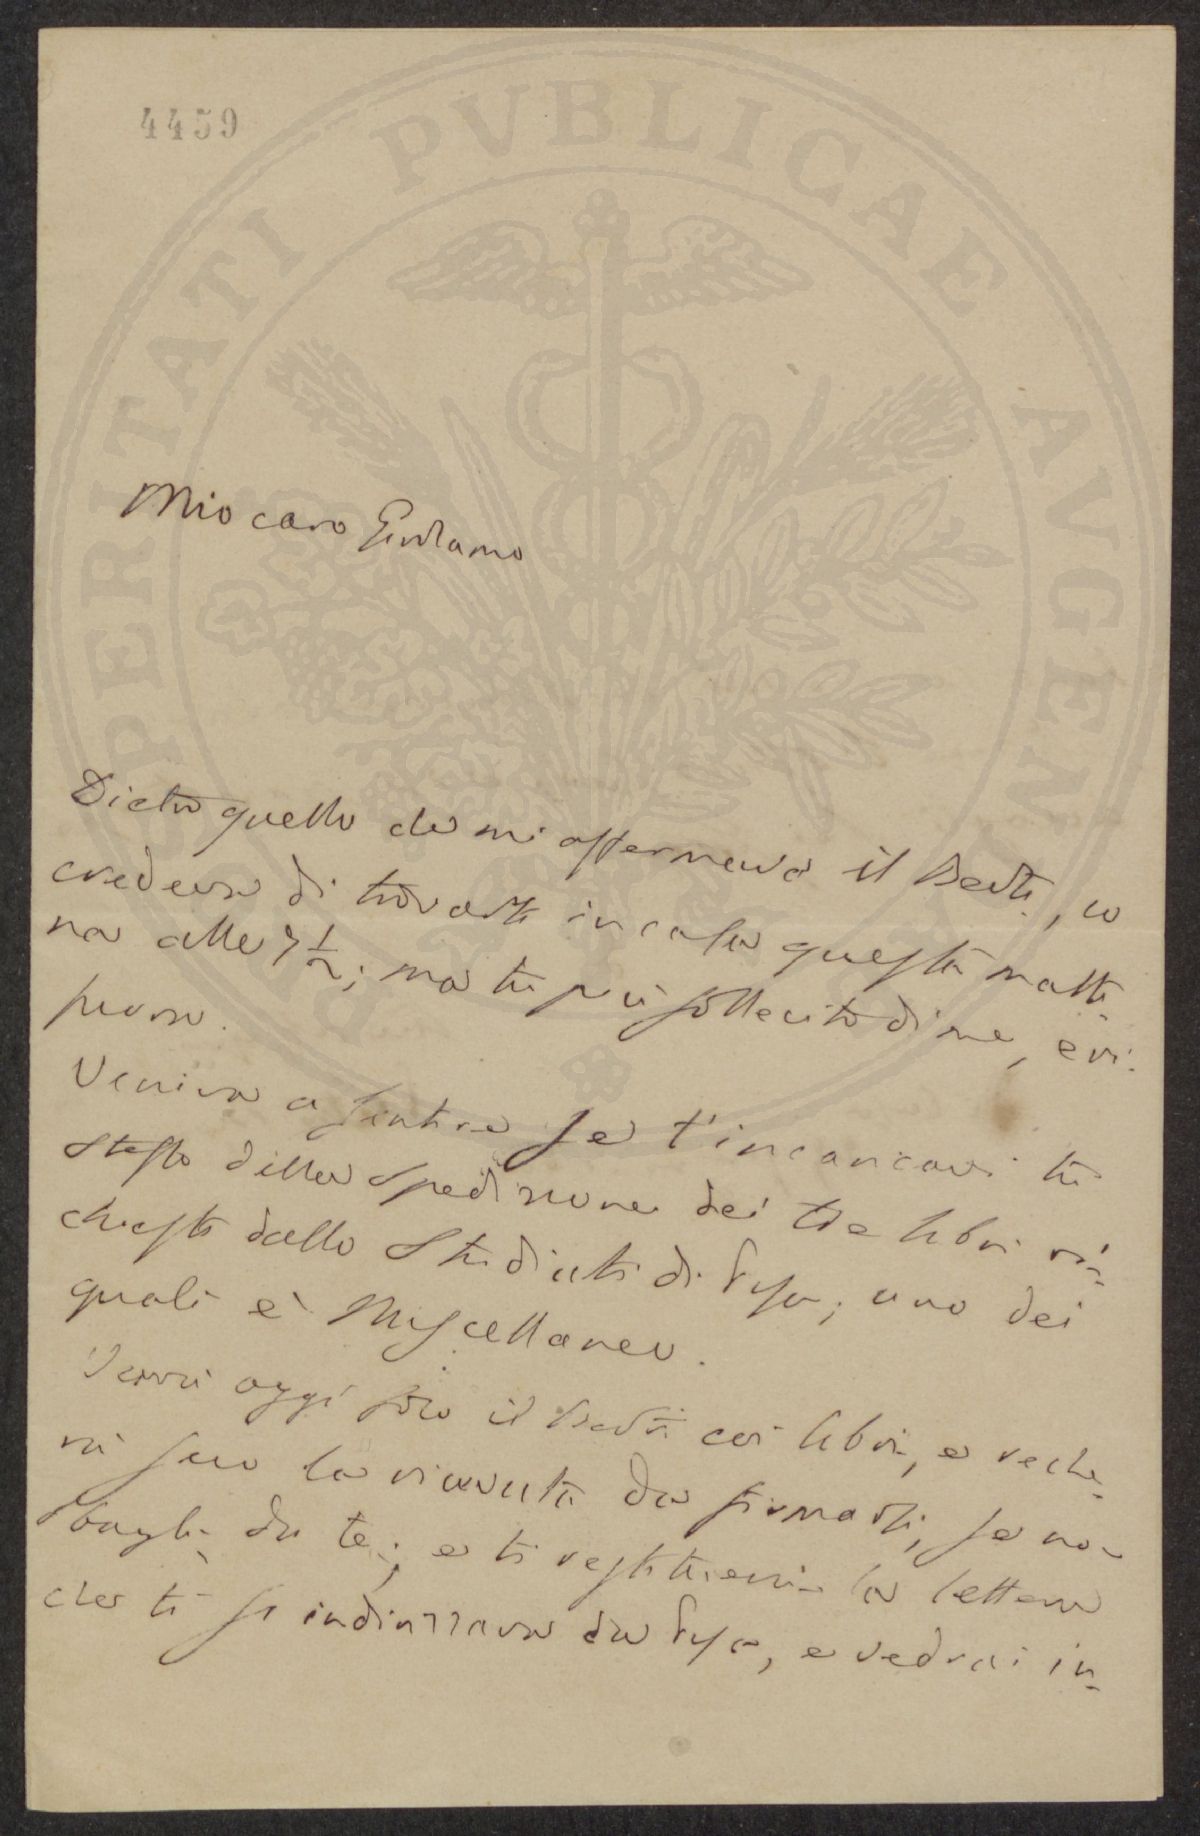 4459
PROSPERITATI PVBLICAE AVGENDAE
Mio caro Girolamo
Dietro quello che mi affermava il , io
credeva di trovarti in casa questa matti
na alle 7 1/2; ma tu più sollecito di me, eri

Veniva a sentire se t'incaricavi tu
stesso della spedizione dei tre libri ri-
chiesti dallo Studiati di Pisa; uno dei
quali è Miscellaneo.
Verrà oggi il coi libri, e reche-
rà seco la ricevuta da firmarsi, se non
sbaglio, da te; e ti restituerà la lettera
che ti si indirizzava da Pisa, e vedrai in-